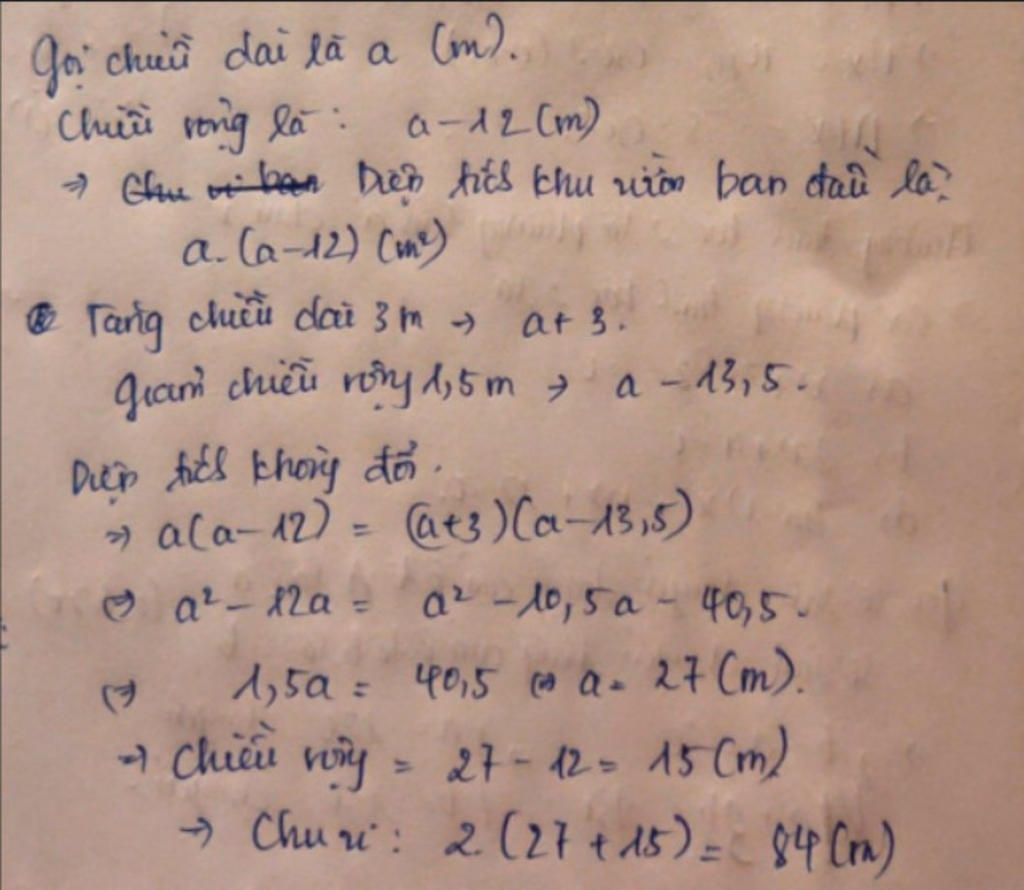 Gọi chiều dài là a (m).
Chiều rộng là: a - 12 (m)
⇒ Chu vi ban Diện tích khu vườn ban đầu là:
a.(a-12) (m²)
Tăng chiều dài 3m → a + 3.
giảm chiều rộng 1,5m → a - 13,5.
Diện tích không đổi.
⇒ a(a-12) = (a+3)(a-13,5)
⇔ a² - 12a = a² - 10,5a - 40,5.
⇔ 1,5a = 40,5 ⇔ a = 27 (m).
→ Chiều rộng = 27 - 12 = 15 (m)
→ Chu vi: 2(27 + 15) = 84 (m)